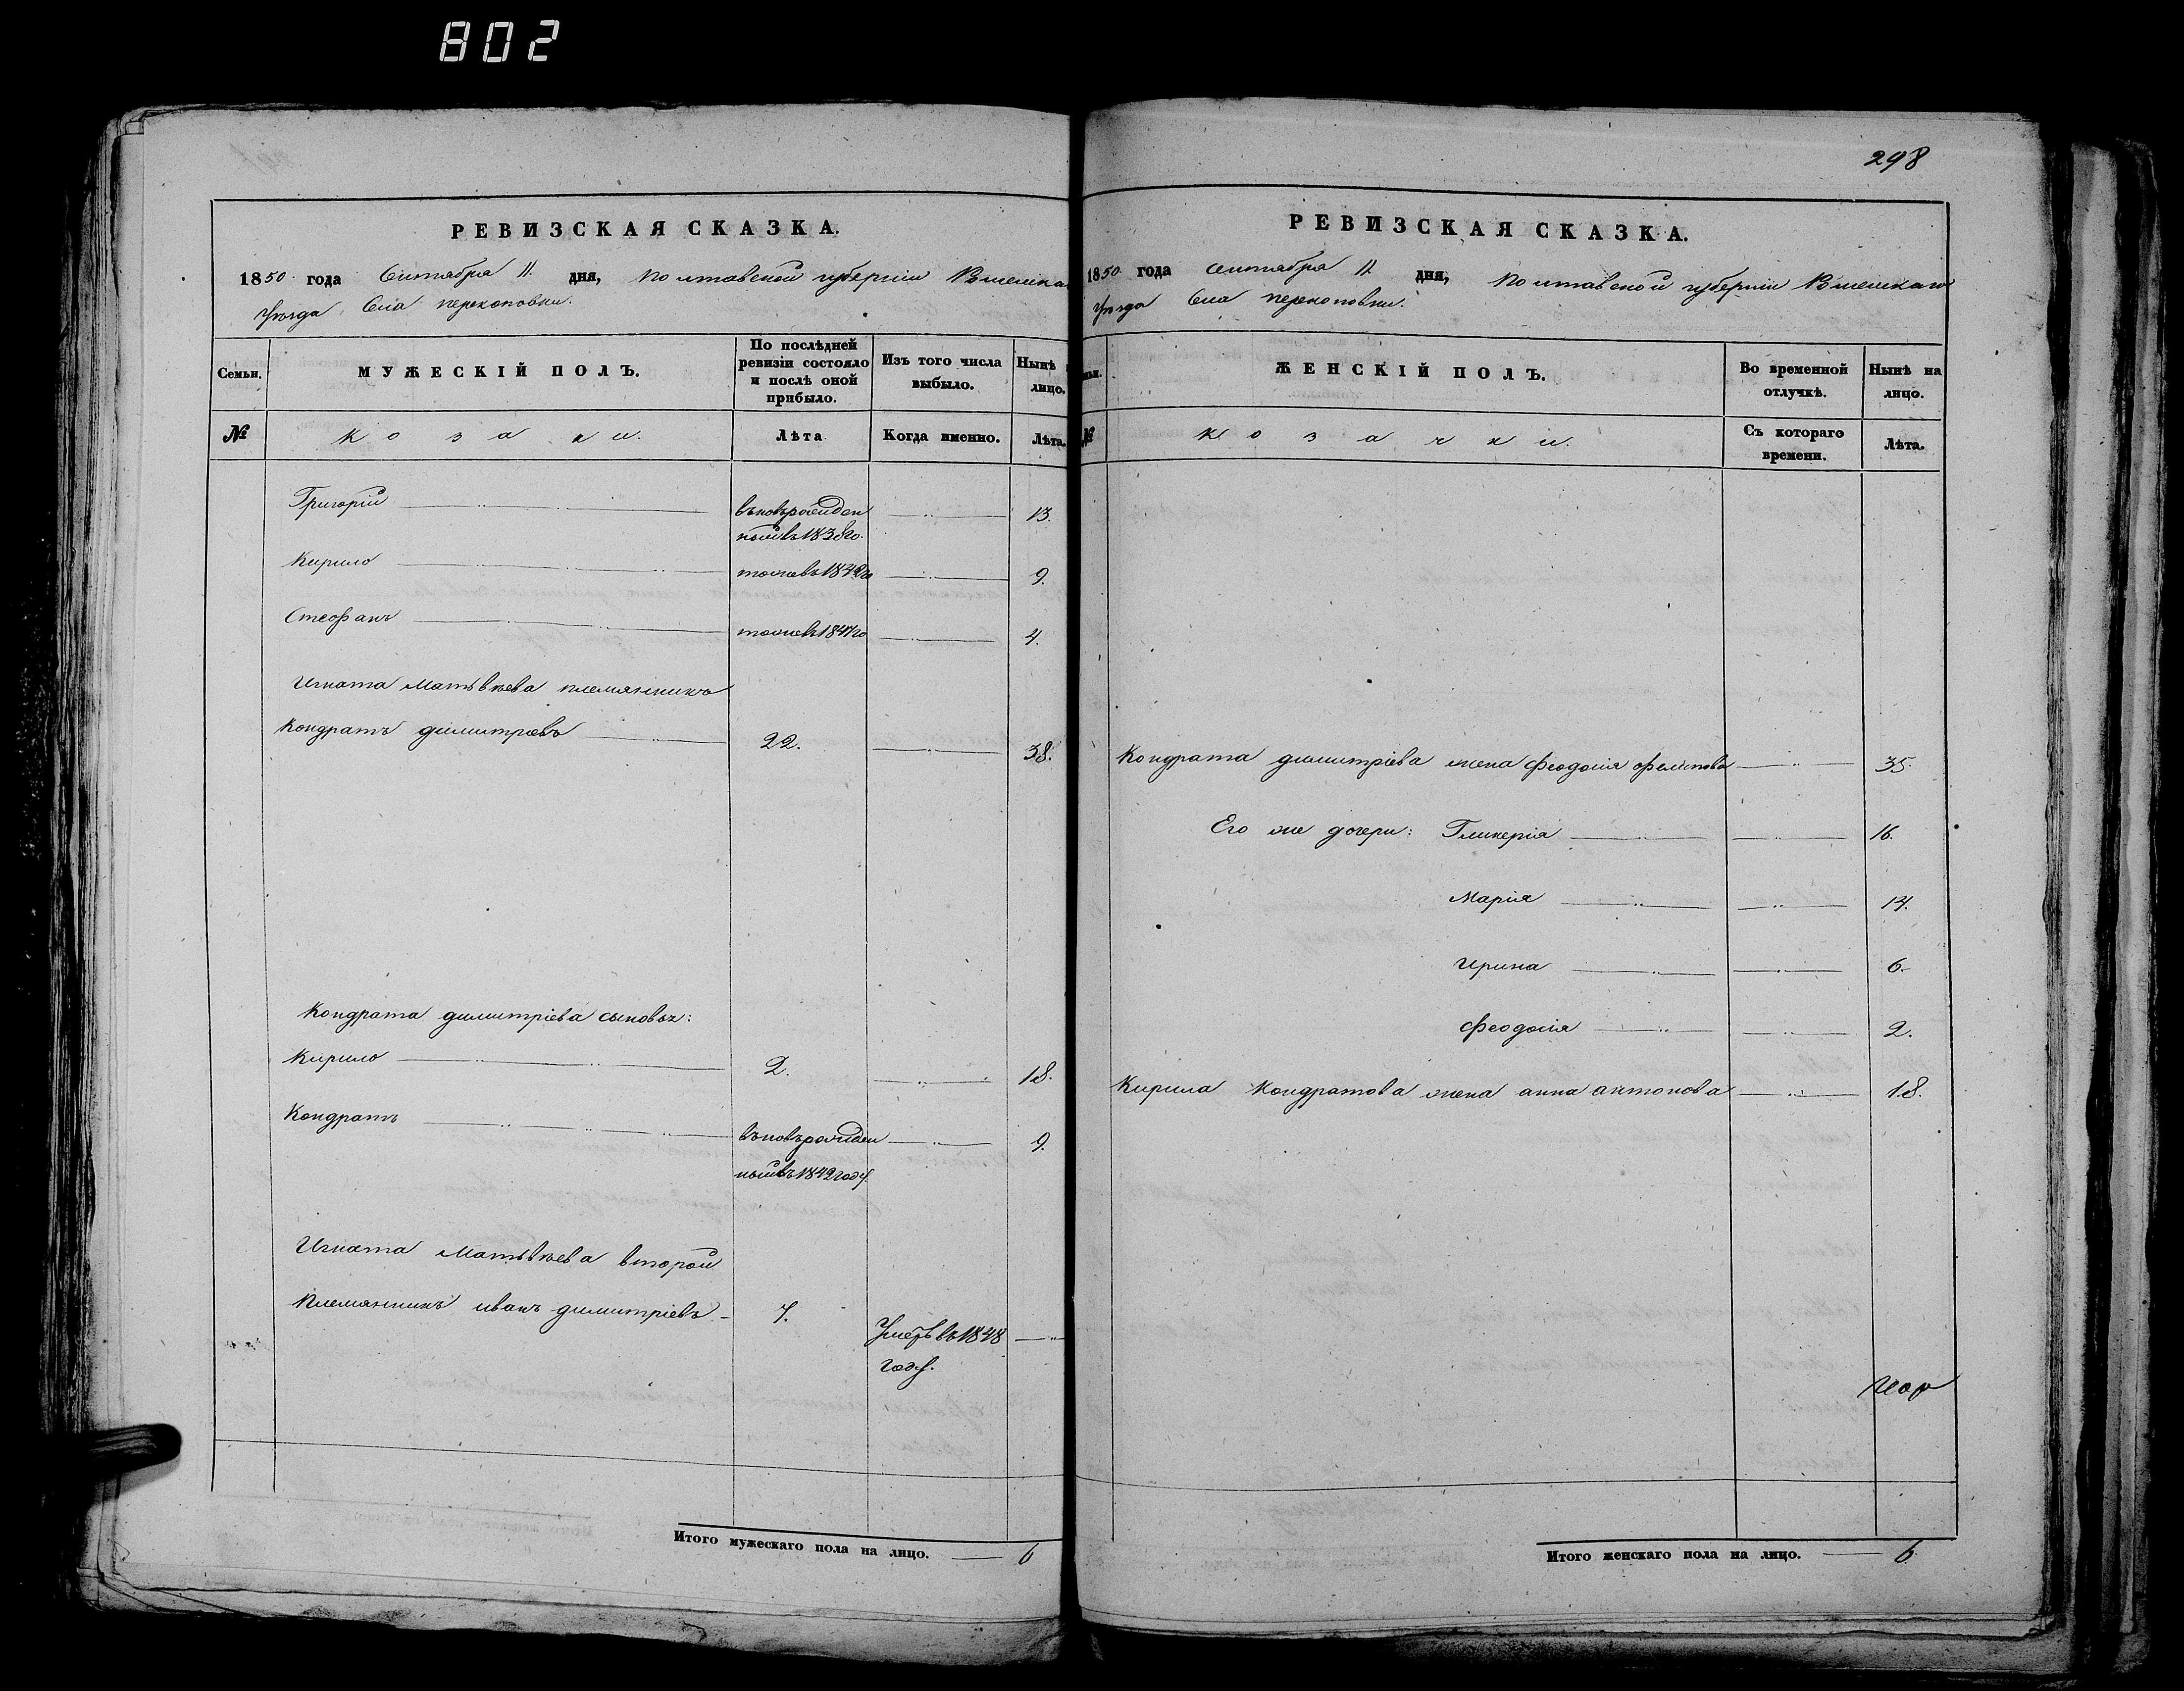 802
РЕВИЗСКАЯ СКАЗКА.
1850 года Сентября 11 дня, Полтавской губернии
Уѣзда Села Перекоповки.
Семьи.
МУЖЕСКІЙ ПОЛЪ.
По послѣдней ревизіи состояло и послѣ оной прибыло.
Изъ того числа выбыло.
Нынѣ
лицо.
№
Козаки.
Лѣта
Когда именно.
Лѣта.
Григорій
въновьрожден
ный въ 1838 го.
13.
Кирило
тоже въ 1842 го
9.
Стефанъ
тоже въ 1847 го
4.
Игната Матвѣева племянникъ
Кондратъ Димитріевъ
22.
38.
Кондрата Димитріева сыновья:
Кирило
2.
18.
Кондратъ
въновьрожден
ный въ 1842 году
9.
Игната Матвѣева второй
Племянникъ Иванъ Димитріевъ
7.
Умеръ въ 1848
году.
Итого мужескаго пола на лицо.
6
298
РЕВИЗСКАЯ СКАЗКА.
1850 года Сентября 11 дня, Полтавской губерніи
Уѣзда Села Перекоповки.
ЖЕНСКІЙ ПОЛЪ.
Во временной отлучкѣ.
Нынѣ на лицо.
№
Козачки.
Съ котораго времени.
Лѣта.
Кондрата Димитріева жена Феодосія Фелипова
35.
Его же дочери: Гликерія
16.
Марія
14.
Ирина
6.
Феодосія
2.
Кирила Кондратова жена Анна Антонова
18.
Итого женскаго пола на лицо.
6